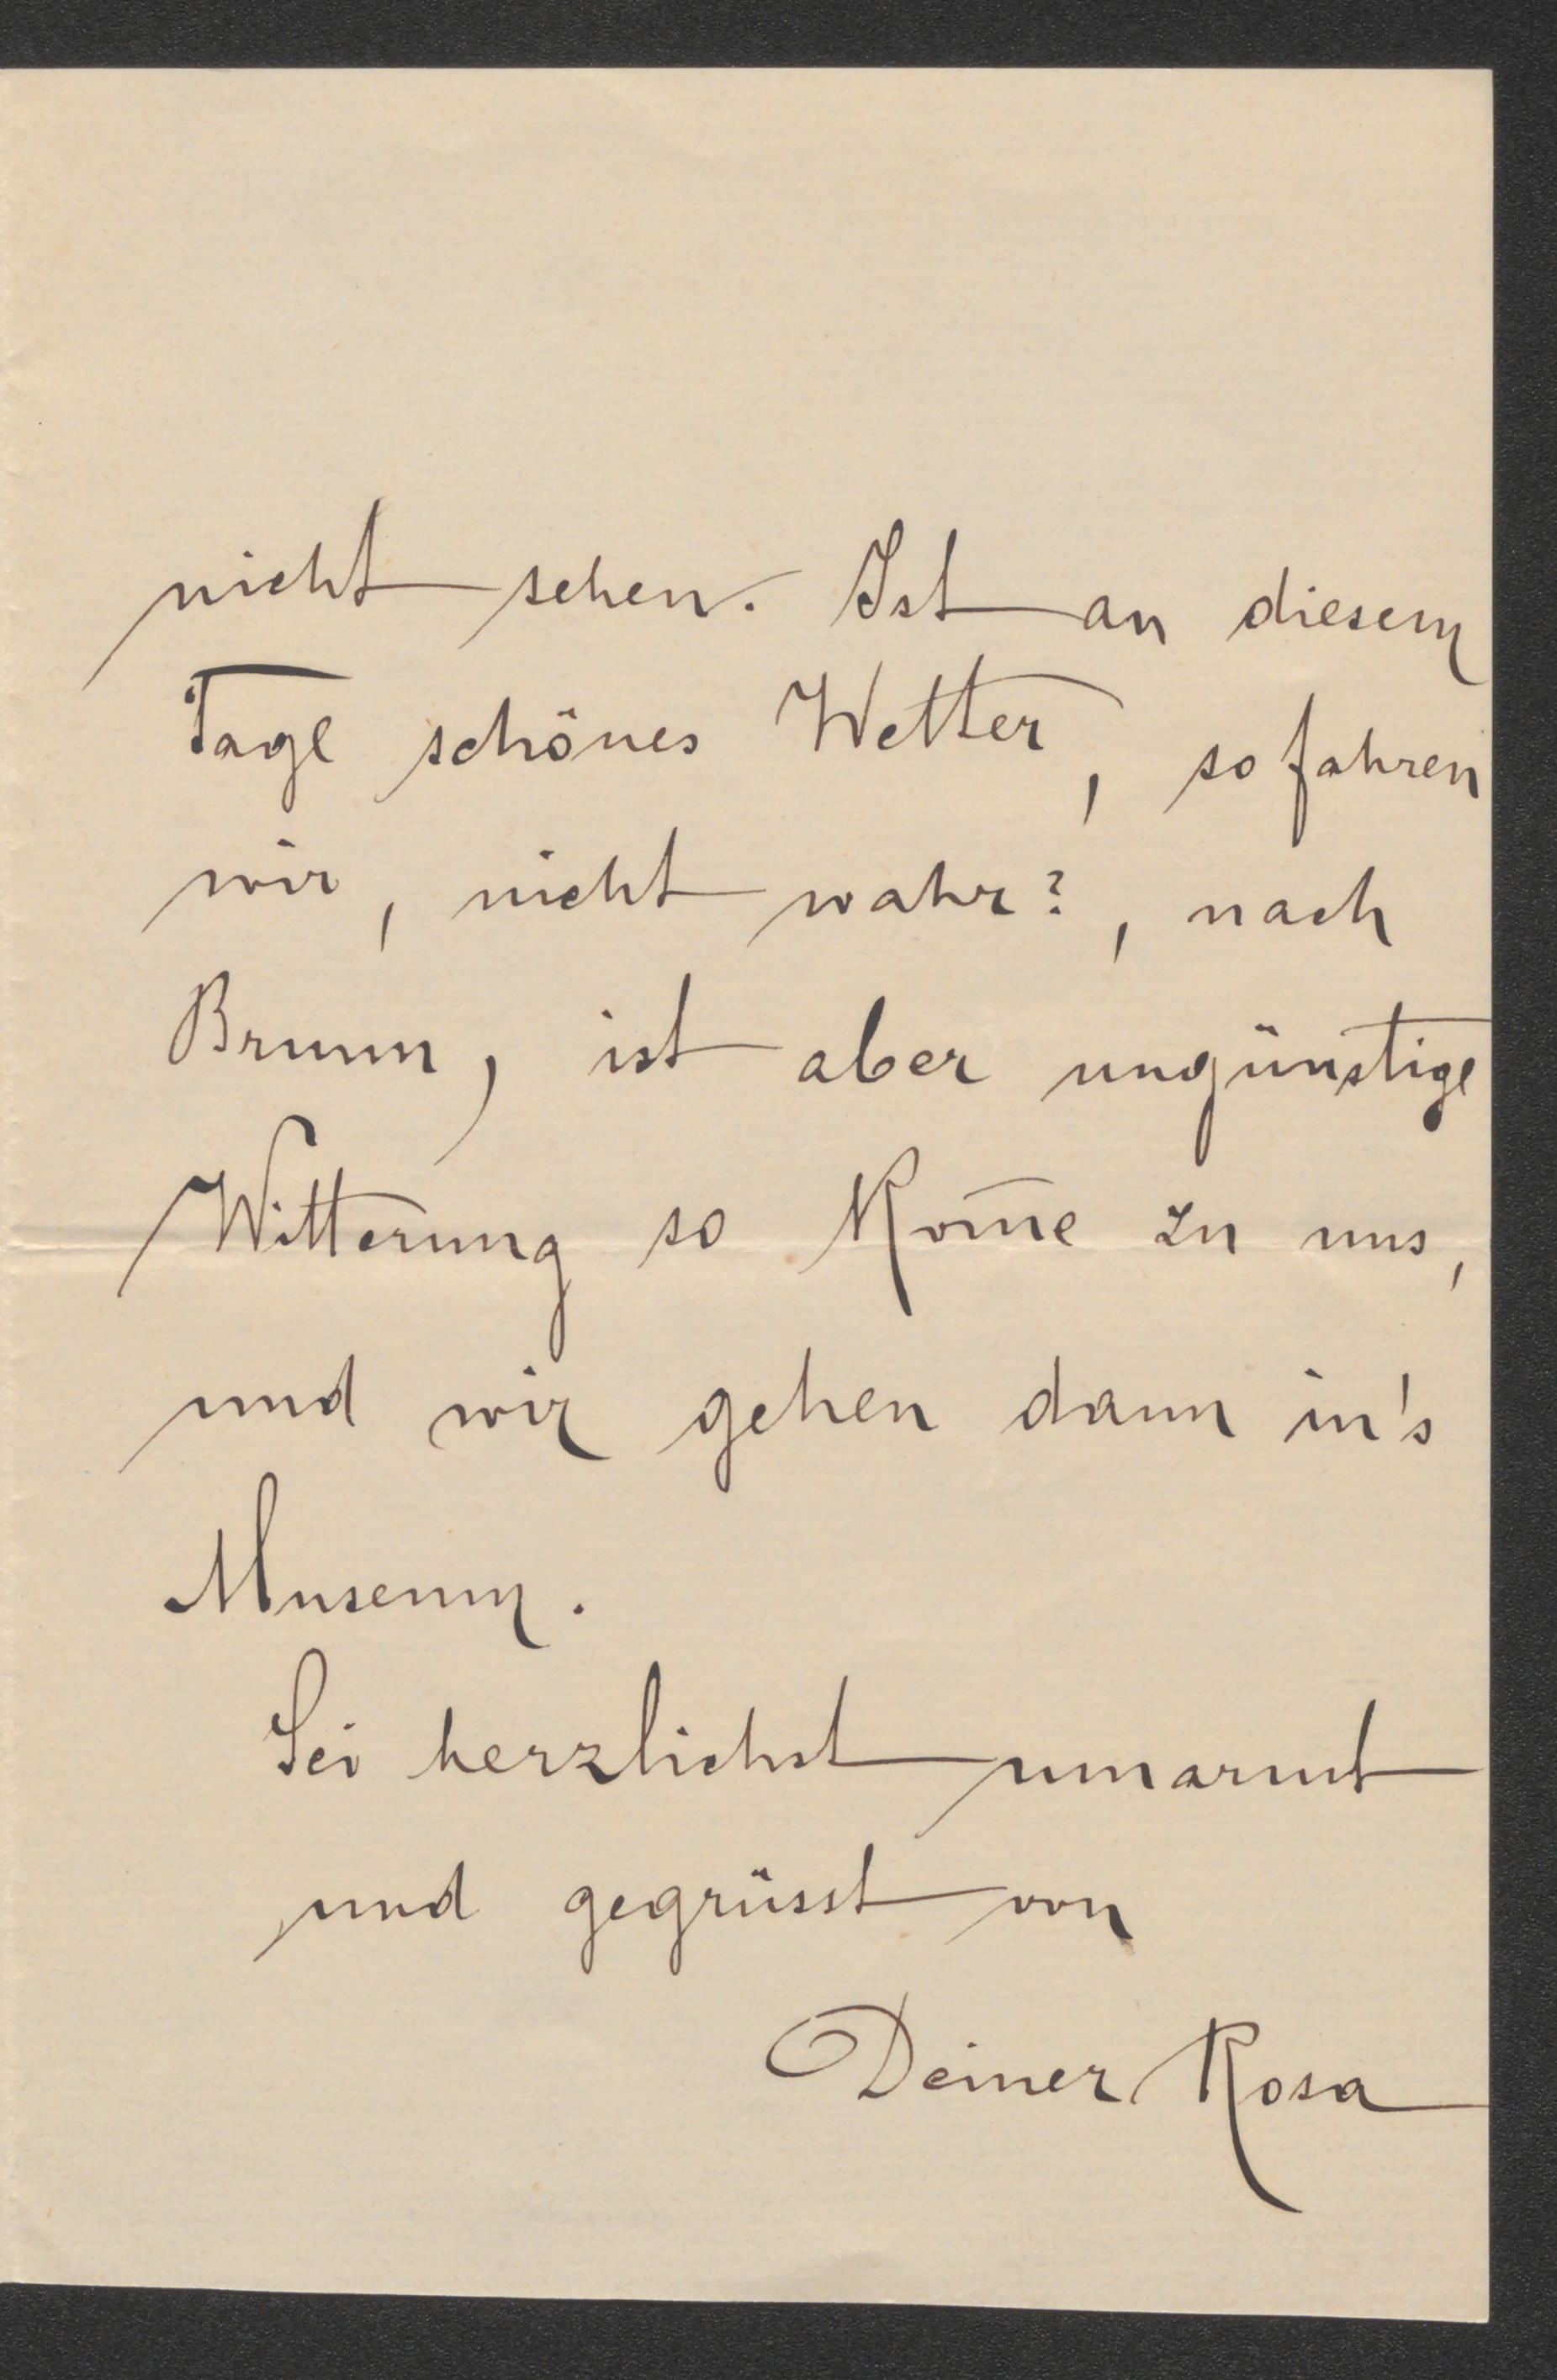 nicht sehen. Ist an diesem
Tage schönes Wetter, so fahren
wir, nicht wahr?, nach
Brunn, ist aber ungünstige
Witterung so kom̅e zu uns,
und wir gehen dann in's
Museum.
Sei herzlichst umarmt
und gegrüsst von
Deiner Rosa